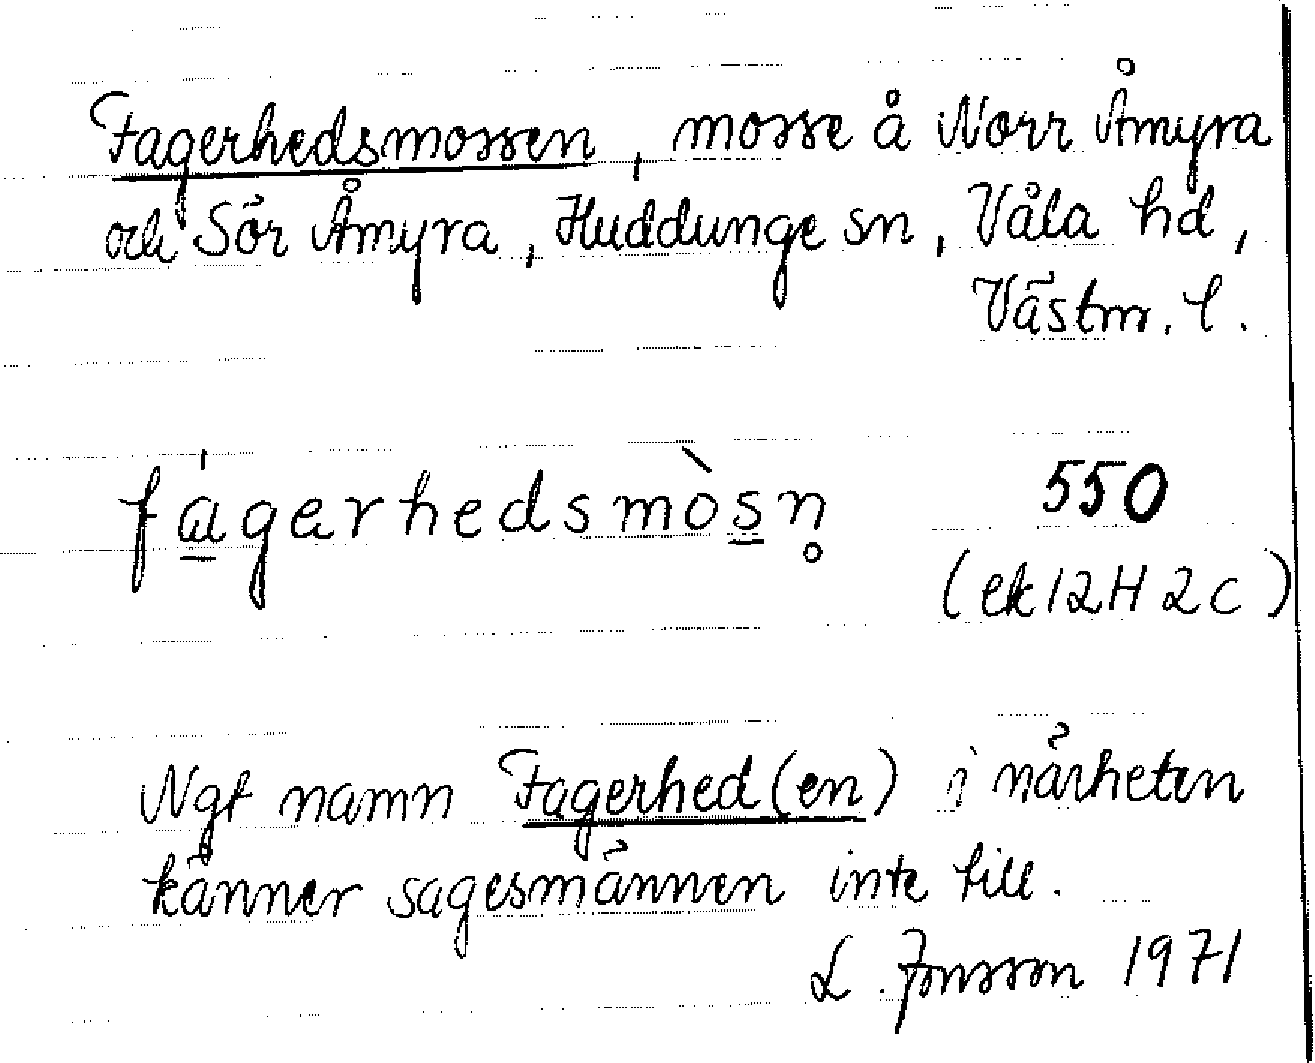 Fagerhedsmossen, mosse å Norr Åmyra
och Sör Åmyra, Huddunge sn, Våla hd,
Västm. l.
fá̲gerhedsmòs̲n̥ 550
(ek 12H 2c)
Ngt namn Fagerhed(en) i närheten
känner sagesmännen inte till.
L. Jonsson 1971